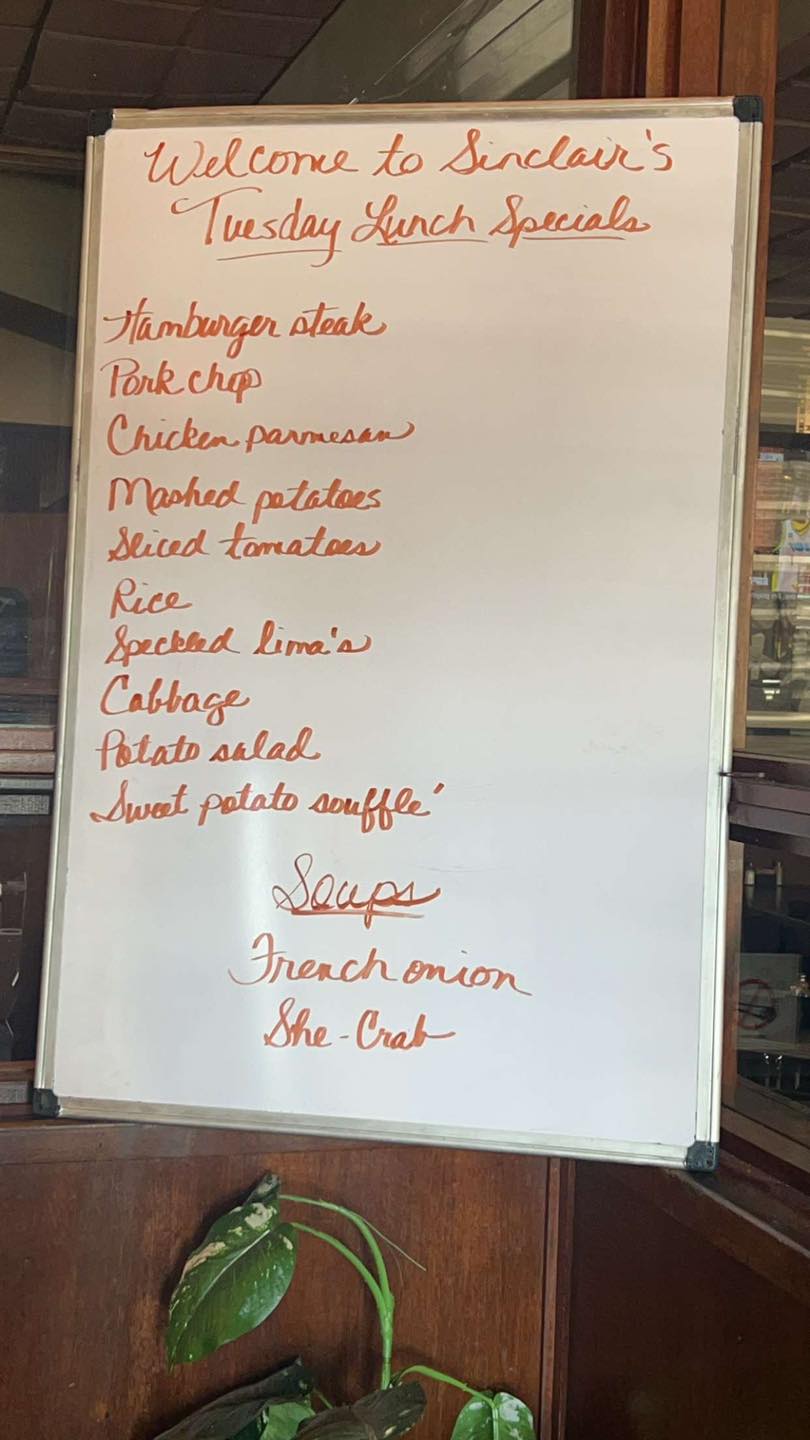 Welcome to Sinclair's
Tuesday Lunch Specials
Hamburger steak
Pork chop
Chicken parmesan
Mashed potatoes
Sliced tomatoes
Rice
Speckled lima's
Cabbage
Potato salad
Sweet potato soufflé
Soups
French onion
She-Crab